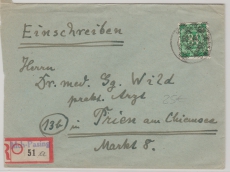 Einschreiben
Herrn
Dr. med. Gg. Wild
prakt. Arzt
(13b) in Prien am Chiemsee
Markt 8.
R
51